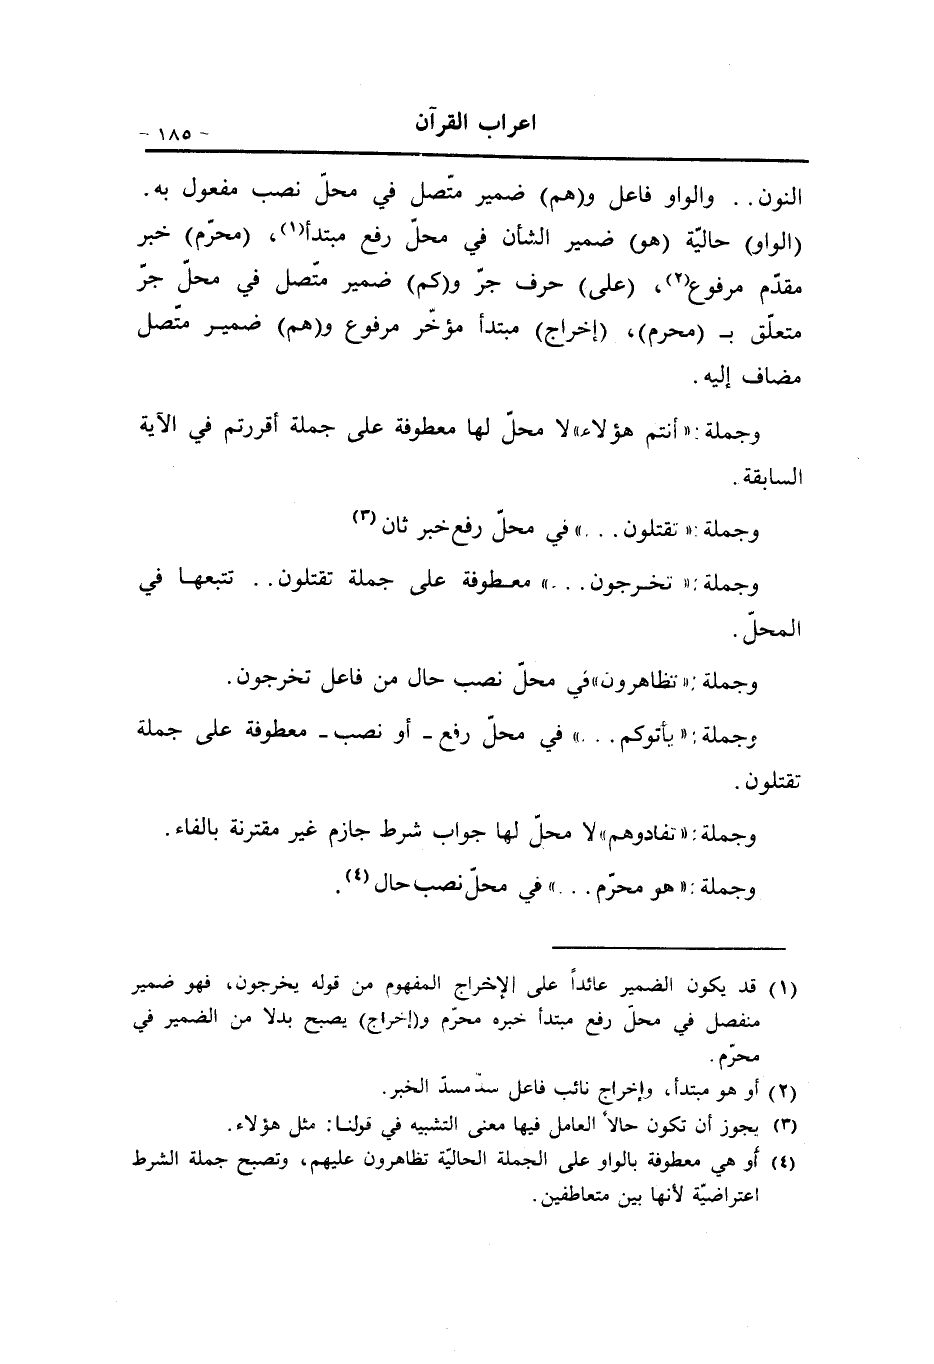 اعراب القرآن
- ١٨٥ -
النون. . والواو فاعل و(هم) ضمير متّصل في محلّ نصب مفعول به.
(الواو) حاليّة (هو) ضمير الشأن في محلّ رفع مبتدأ(١)، (محرّم) خبر
مقدّم مرفوع(٢)، (على) حرف جرّ و(كم) ضمير متّصل في محلّ جرّ
متعلّق بـ (محرم)، (إخراج) مبتدأ مؤخّر مرفوع و(هم) ضمير متّصل
مضاف إليه.
وجملة: «أنتم هؤلاء» لا محلّ لها معطوفة على جملة أقررتم في الآية
السابقة.
وجملة: «تقتلون. . .» في محلّ رفع خبر ثان (٣)
وجملة: «تخرجون. . .» معطوفة على جملة تقتلون. . تتبعها في
المحلّ.
وجملة: «تظاهرون» في محلّ نصب حال من فاعل تخرجون.
وجملة: «يأتوكم. . .» في محلّ رفع - أو نصب - معطوفة على جملة
تقتلون.
وجملة: «تفادوهم» لا محلّ لها جواب شرط جازم غير مقترنة بالفاء.
وجملة: «هو محرّم. . .» في محلّ نصب حال (٤).
(١) قد يكون الضمير عائداً على الإخراج المفهوم من قوله يخرجون، فهو ضمير
منفصل في محلّ رفع مبتدأ خبره محرّم و(إخراج) يصبح بدلا من الضمير في
محرّم.
(٢) أو هو مبتدأ، وإخراج نائب فاعل سدّ مسدّ الخبر.
(٣) يجوز أن تكون حالاً العامل فيها معنى التشبيه في قولنا: مثل هؤلاء.
(٤) أو هي معطوفة بالواو على الجملة الحاليّة تظاهرون عليهم، وتصبح جملة الشرط
اعتراضيّة لأنها بين متعاطفين.